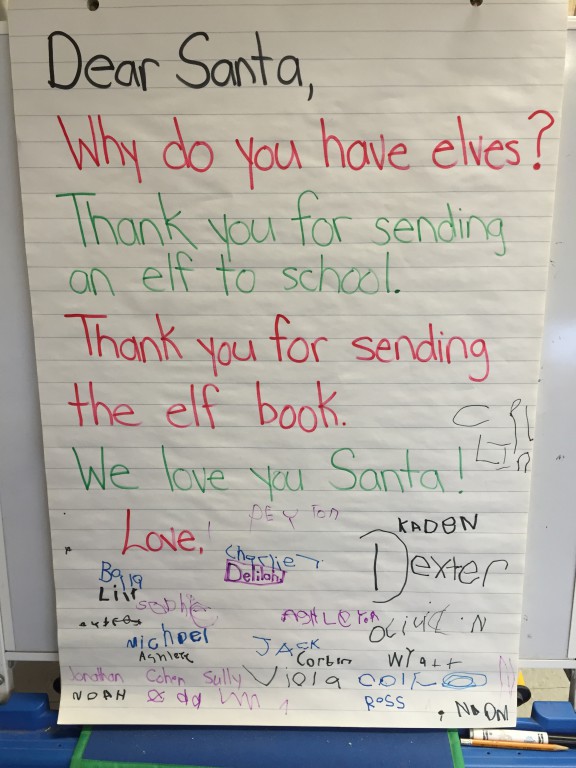 Dear Santa,
Why do you have elves?
Thank you for sending
an elf to school.
Thank you for sending
the elf book.
We love you Santa!
PEyTon
Love,
KADEN
Charlie
Dexter
Bella
Delilah
Sophie
ASHLEToN
Michael
JACK
WyAtt
Corbin
Jonathan Cohen Sully Viola
NOAH
ROSS